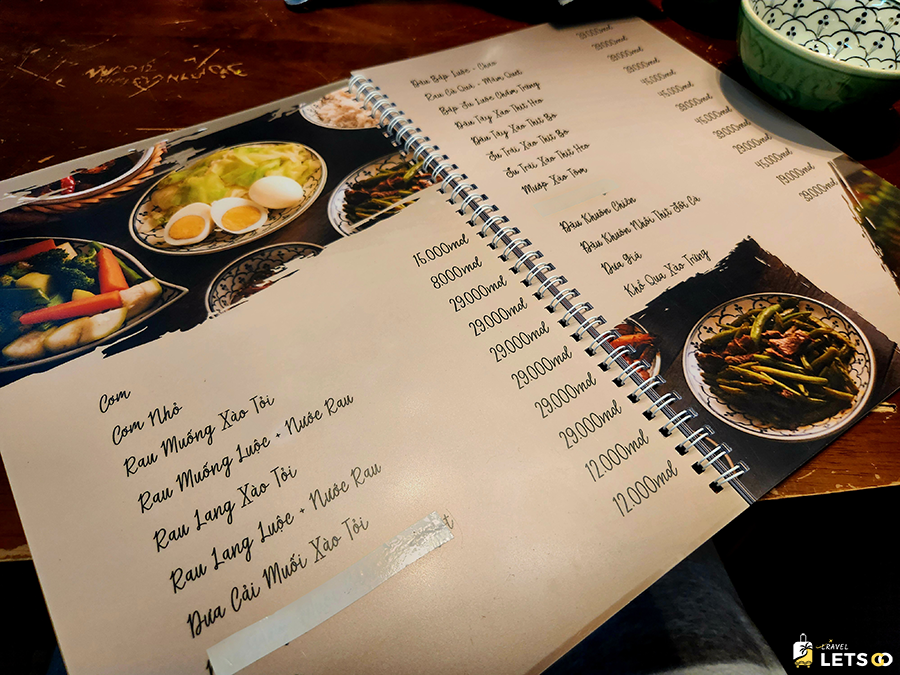 Cơm
Cơm Nhỏ
Rau Muống Xào Tỏi
Rau Muống Luộc + Nước Rau
Rau Lang Xào Tỏi
Rau Lang Luộc + Nước Rau
Dưa Cải Muối Xào Tỏi
15.000vnđ
8.000vnđ
29.000vnđ
29.000vnđ
29.000vnđ
29.000vnđ
29.000vnđ
29.000vnđ
12.000vnđ
12.000vnđ
Đậu Bắp Luộc - Chao
Rau Củ Quả - Mắm Quẹt
Bắp Su Luộc Chấm Trứng
Đậu Tây Xào Thịt Heo
Đậu Tây Xào Thịt Bò
Su Trái Xào Thịt Bò
Su Trái Xào Thịt Heo
Mướp Xào Tôm
Đậu Khuôn Chiên
Đậu Khuôn Nhồi Thịt Sốt Cà
Dưa Giá
Khổ Qua Xào Trứng
39.000vnđ
39.000vnđ
39.000vnđ
45.000vnđ
45.000vnđ
39.000vnđ
45.000vnđ
39.000vnđ
29.000vnđ
45.000vnđ
19.000vnđ
39.000vnđ
TRAVEL
LETSGO